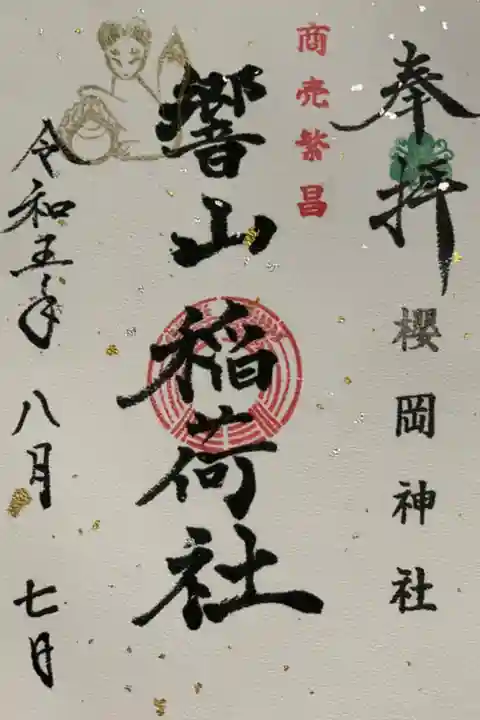 奉拝
櫻岡神社
商売繁昌
響山稲荷社
令和五年
八月
七日